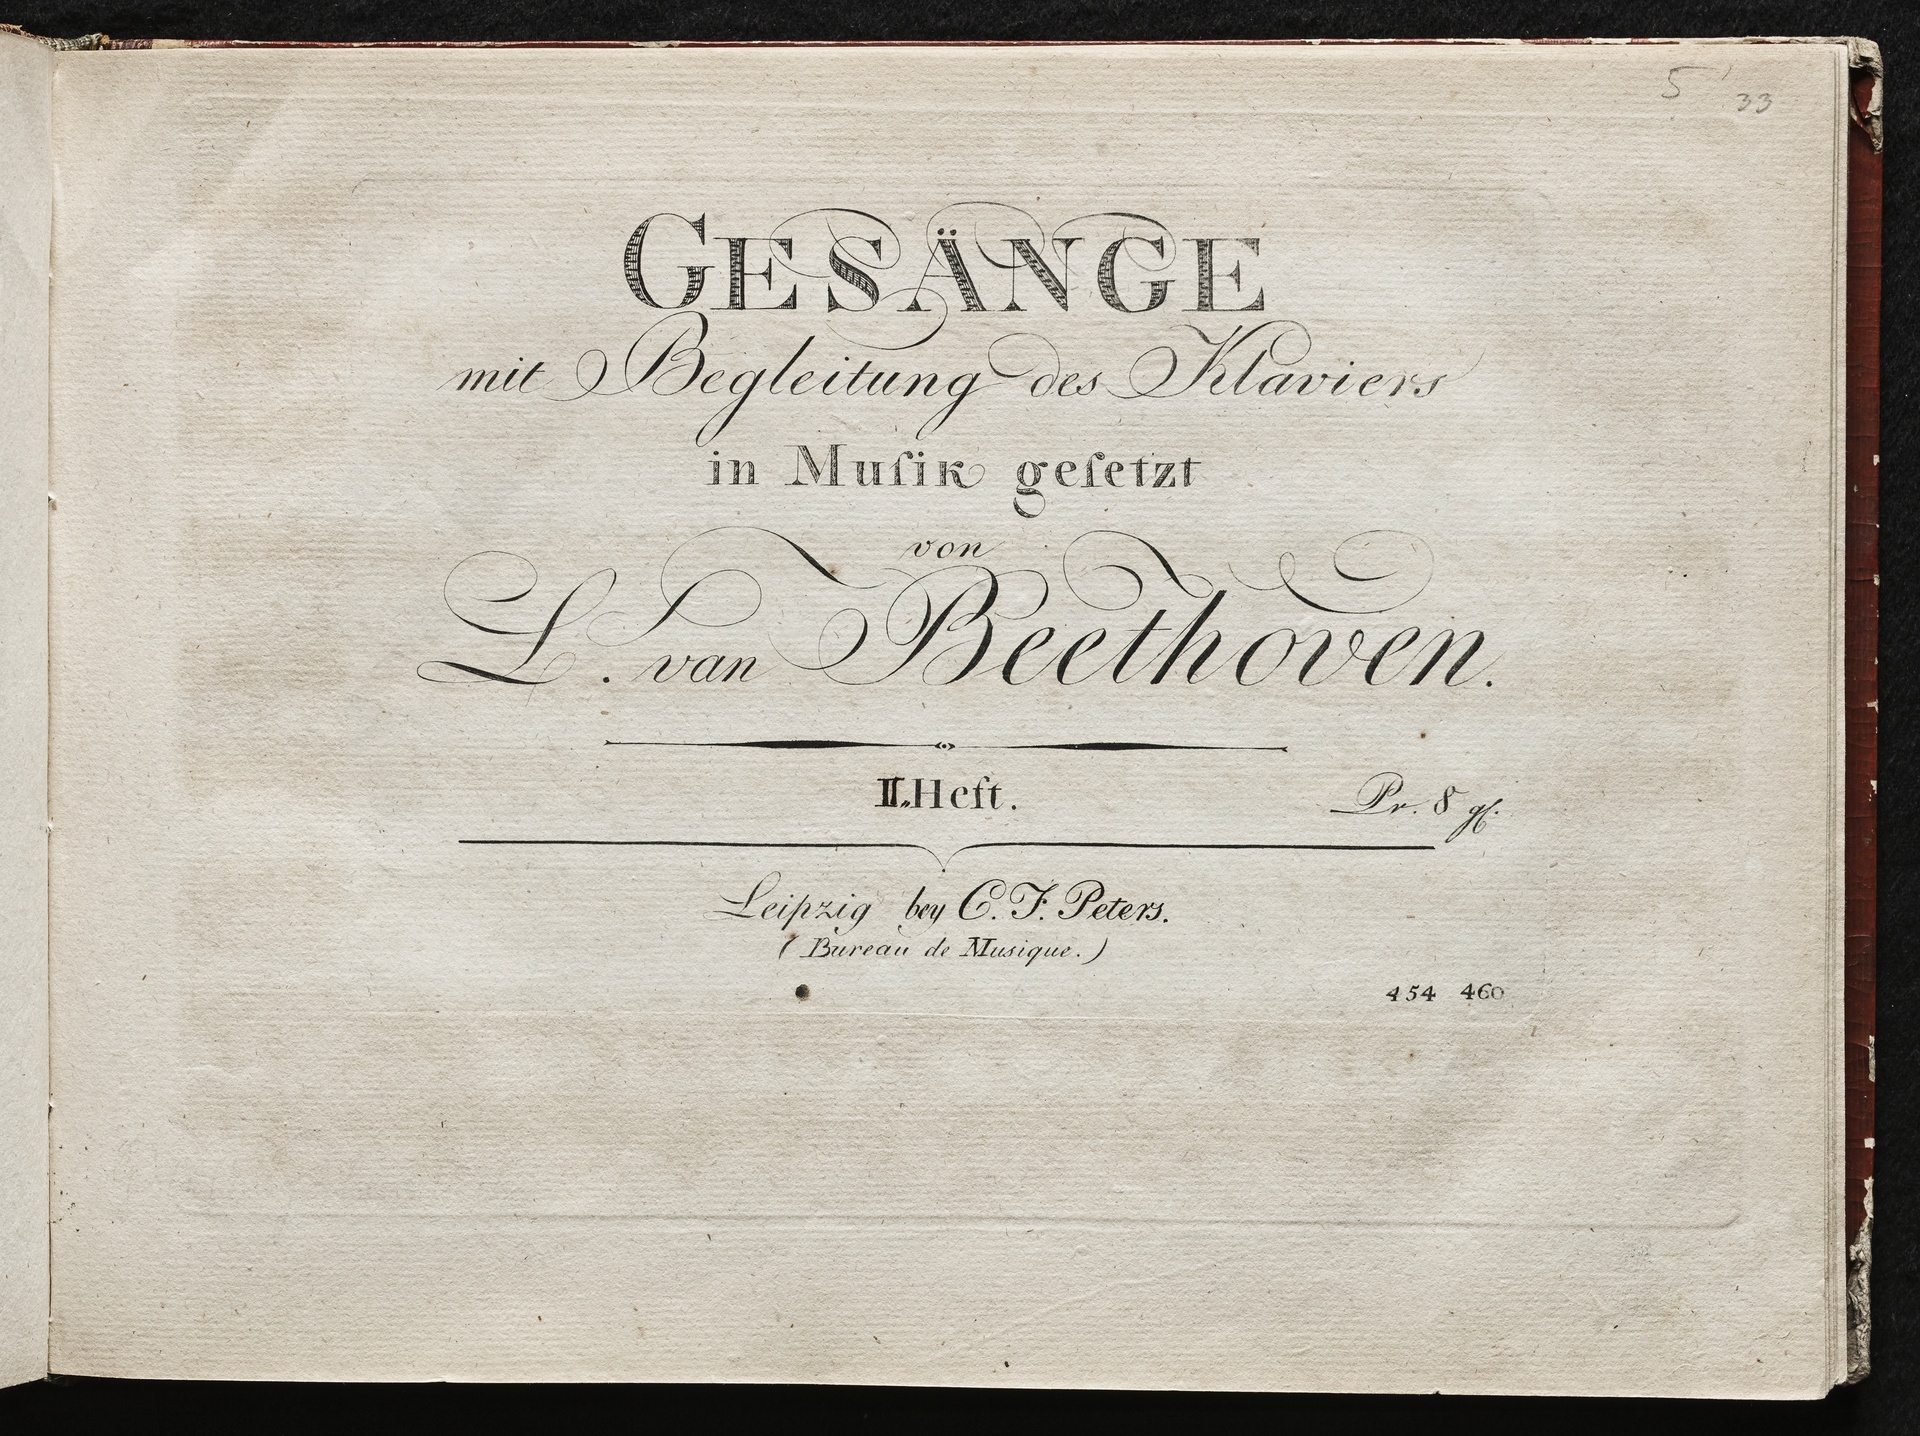 5 33
GESÄNGE
mit Begleitung des Klaviers
in Muſik geſetzt
von
L. van Beethoven.
II. Heft.
Pr. 8 gſ.
Leipzig bey C. F. Peters.
(Bureau de Musique.)
454 460